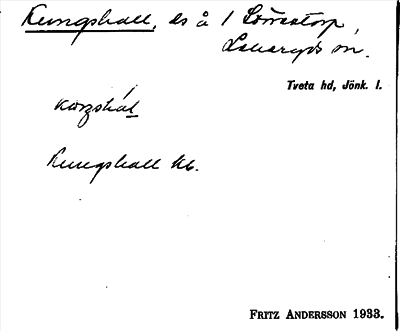 Kungshall, ls å 1 Lövestorp,
Lekeryds sn.
Tveta hd, Jönk. l.
Kungshall kb.
FRITZ ANDERSSON 1933.